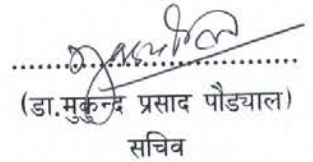 ....................................
(डा.मुकुन्द प्रसाद पौड्याल)
सचिव